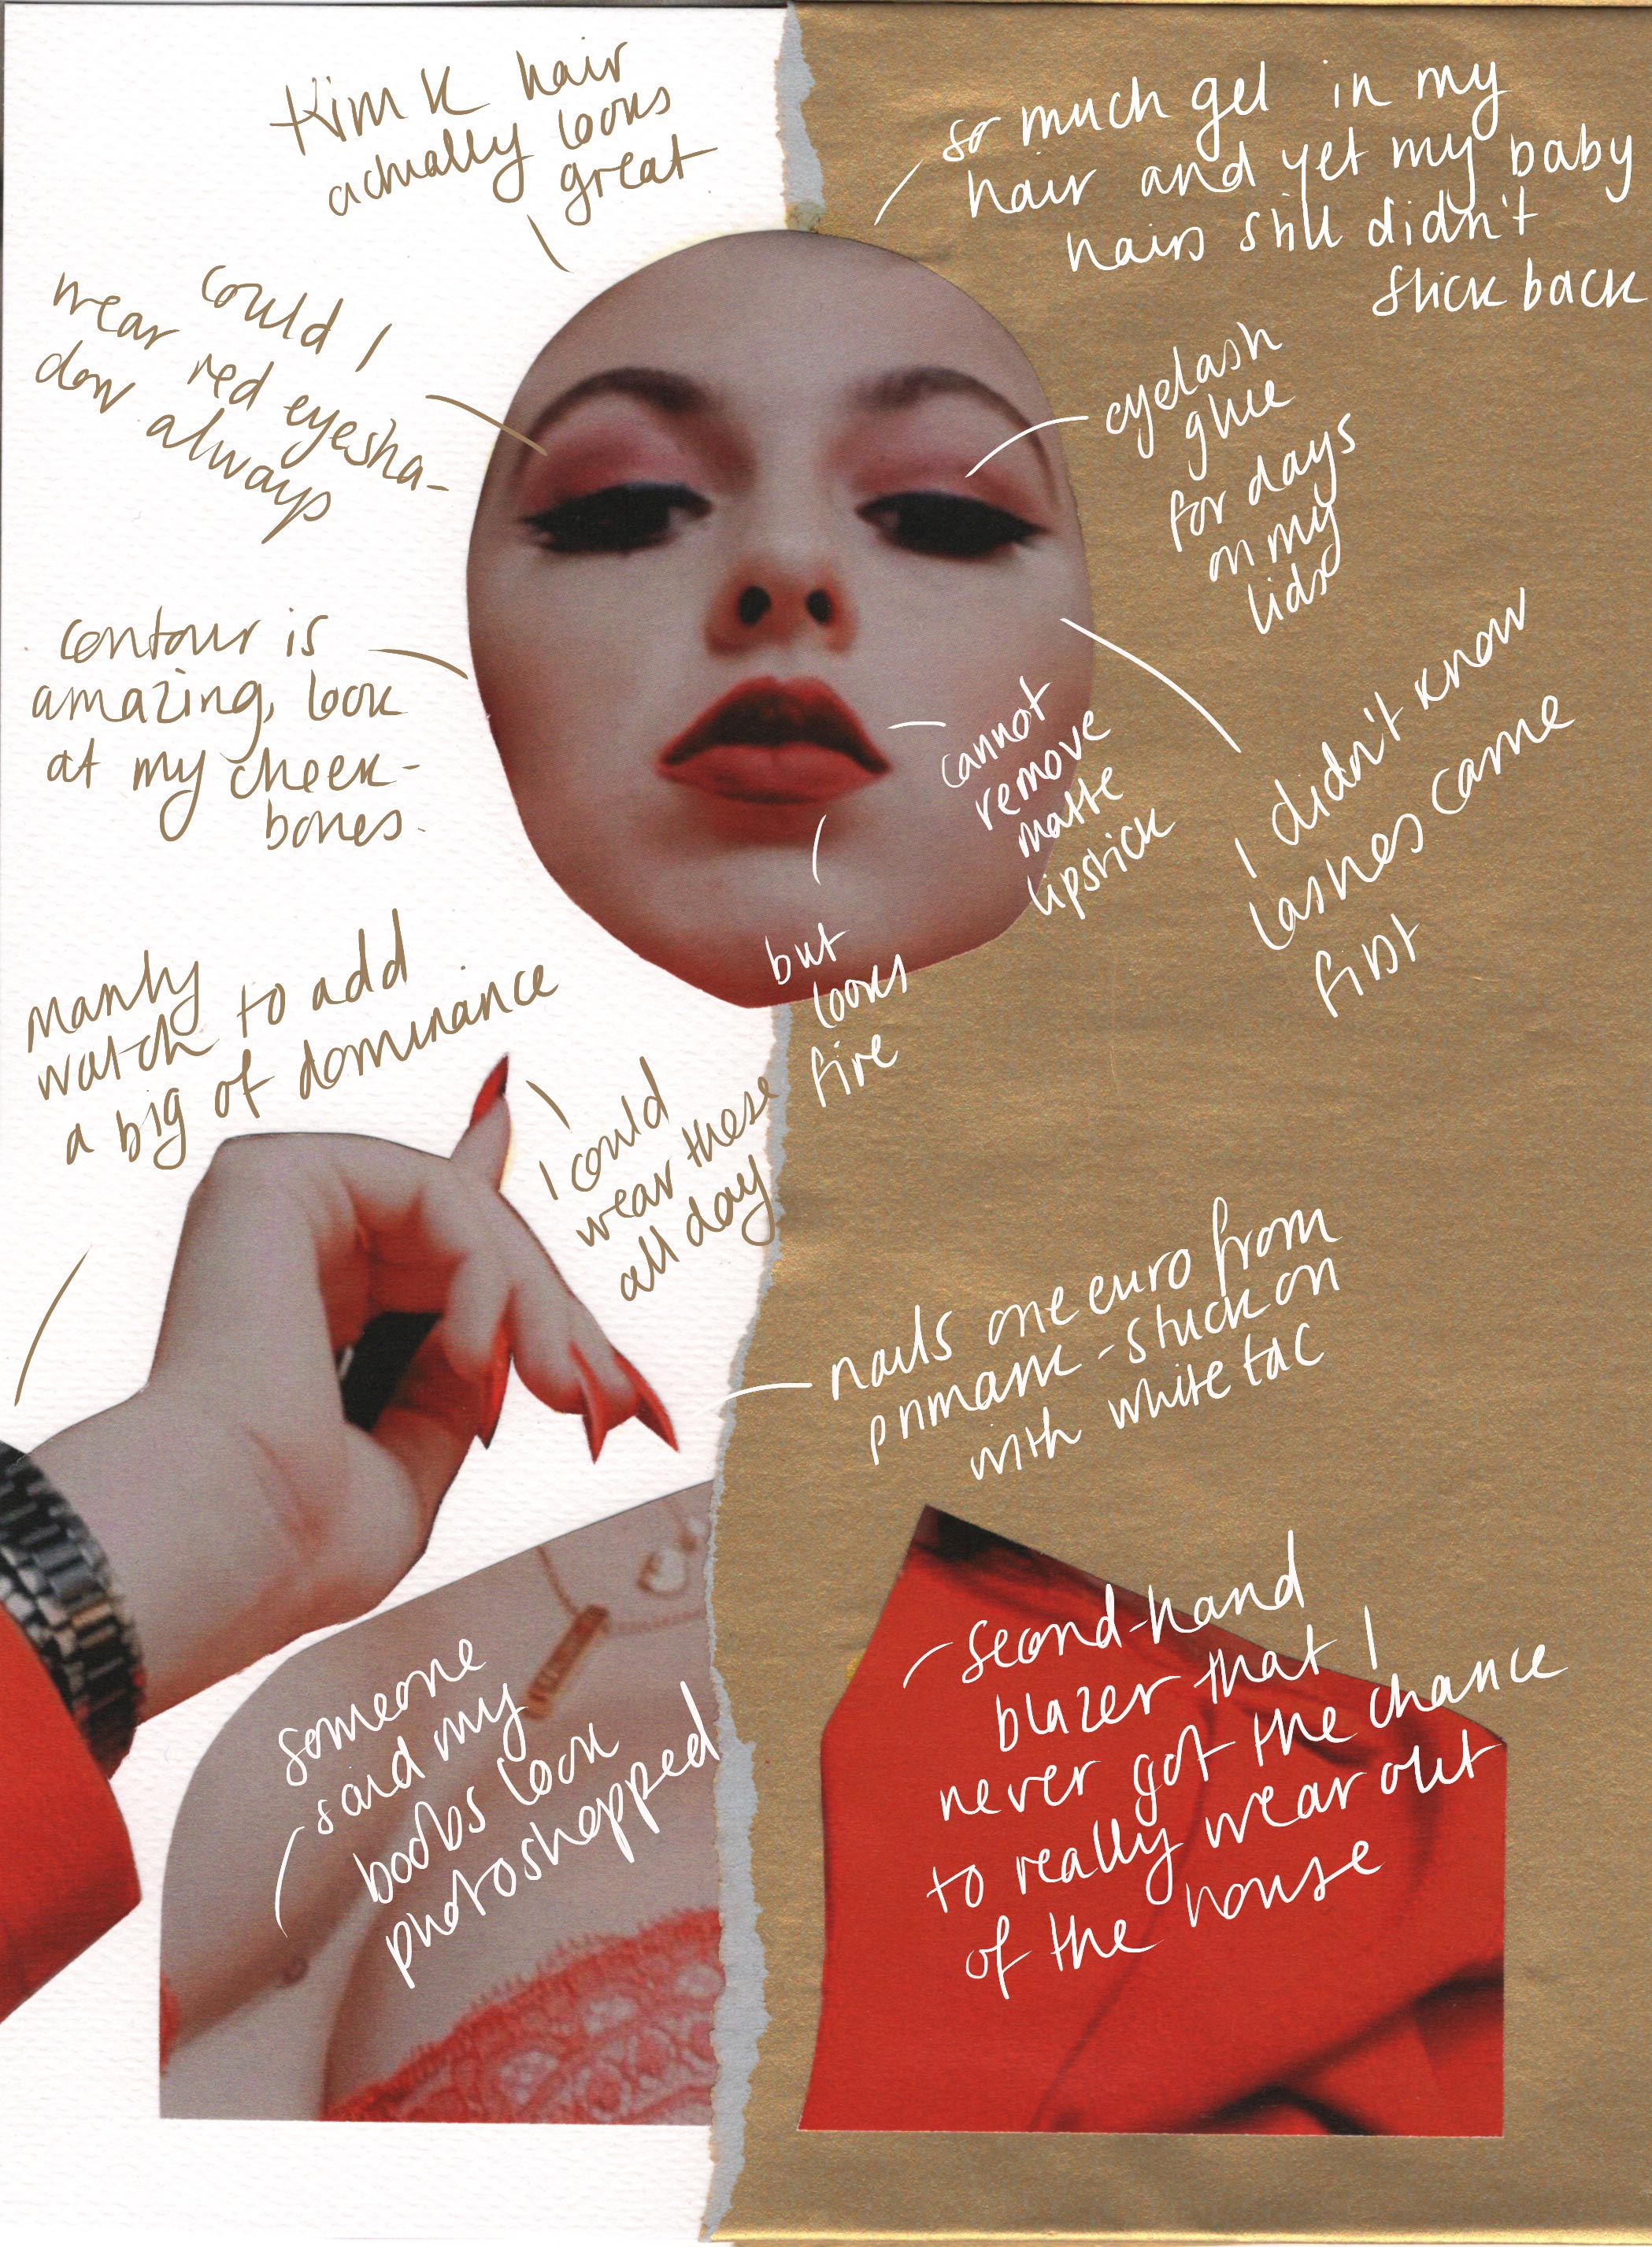 Kim K hair
actually looks
great
so much gel in my
hair and yet my baby
hairs still didn't
stick back
could I
wear red eyesha-
dow always
eyelash
glue
for days
on my
lids
contour is
amazing, look
at my cheek-
bones.
cannot
remove
matte
lipstick
but
looks
fire
I didn't know
lashes came
first
manly
watch to add
a big of dominance
I could
wear these
all day
nails one euro from
primark - stuck on
with white tac
someone
said my
boobs look
photoshopped
second-hand
blazer that I
never got the chance
to really wear out
of the house